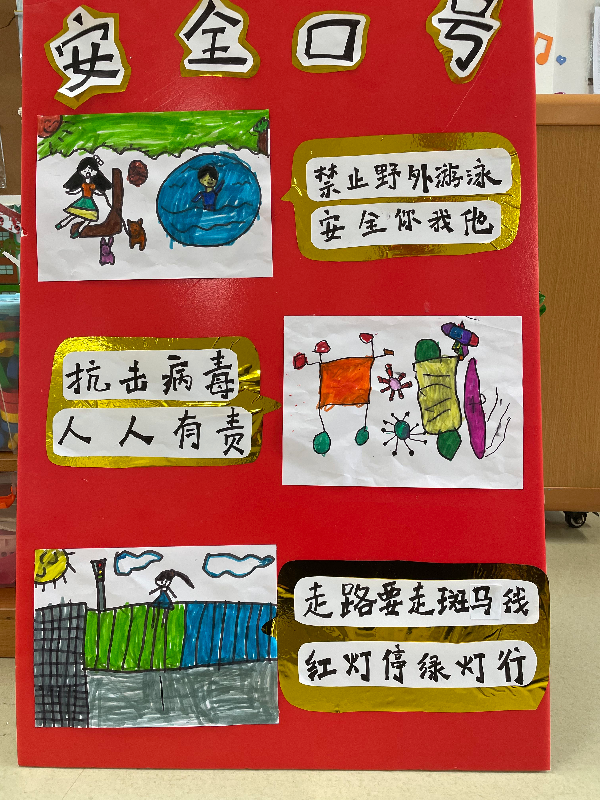 安全口号
禁止野外游泳
安全你我他
抗击病毒
人人有责
走路要走斑马线
红灯停绿灯行